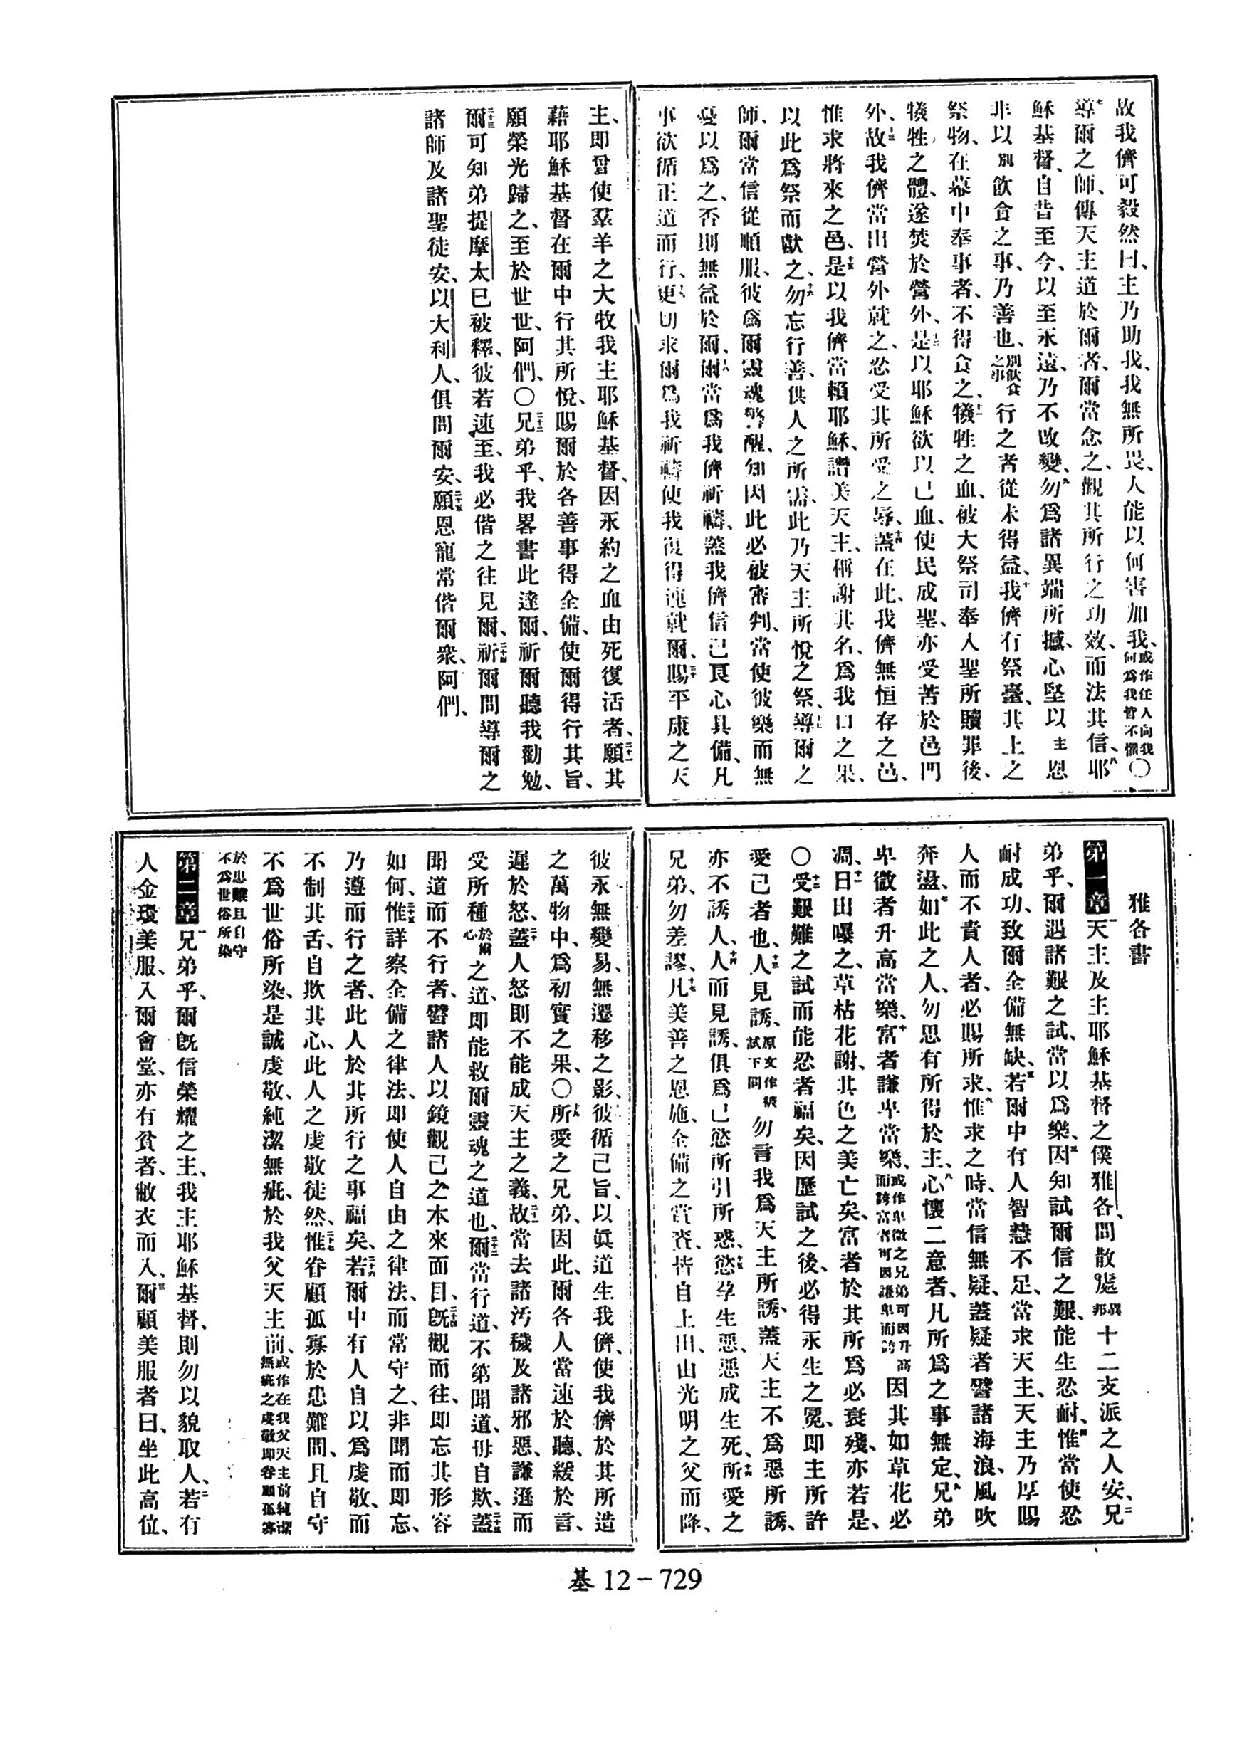 故我儕可毅然曰、主乃助我、我無所畏、人能以何害加我、或作任人向我何爲我皆不懼〇七
導爾之師、傳天主道於爾者、爾當念之、觀其所行之功效、而法其信、八耶
穌基督、自昔至今、以至永遠、乃不改變、九勿爲諸異端所撼、心堅以主恩
非以別飲食之事、乃善也、別飲食之事行之者從未得益、十我儕有祭臺、其上之
祭物、在幕中奉事者、不得食之、十一犧牲之血、被大祭司奉入聖所贖罪後、
犧牲之體、遂焚於營外、十二是以耶穌欲以己血、使民成聖、亦受苦於邑門
外、十三故我儕當出營外就之、忍受其所受之辱、十四蓋在此、我儕無恒存之邑、
惟求將來之邑、十五是以我儕當賴耶穌、讚美天主、稱謝其名、爲我口之果、
以此爲祭而獻之、十六勿忘行善、供人之所需、此乃天主所悅之祭、十七導爾之
師、爾當信從順服、彼爲爾靈魂警醒、知因此必被審判、當使彼樂而無
憂以爲之、否則無益於爾、十八爾當爲我儕祈禱、蓋我儕信己良心具備、凡
事欲循正道而行、十九更切求爾爲我祈禱、使我復得速就爾、二十賜平康之天
主、卽曾使羣羊之大牧我主耶穌基督、因永約之血由死復活者、二十一願其
藉耶穌基督、在爾中行其所悅、賜爾於各善事得全備、使爾得行其旨、
願榮光歸之、至於世世、阿們、〇二十二兄弟乎、我畧書此達爾、祈爾聽我勸勉、
二十三爾可知弟提摩太已被釋、彼若速至、我必偕之往見爾、二十四祈爾問導爾之
諸師及諸聖徒安、以大利人、俱問爾安、二十五願恩寵常偕爾衆、阿們、
雅各書
第一章一天主及主耶穌基督之僕雅各、問散處異邦十二支派之人安、二兄
弟乎、爾遇諸艱之試、當以爲樂、三因知試爾信之艱、能生忍耐、四惟當使忍
耐成功、致爾全備無缺、五若爾中有人智慧不足、當求天主、天主乃厚賜
人而不責人者、必賜所求、六惟求之時、當信無疑、蓋疑者譬諸海浪、風吹
奔盪、七如此之人、勿思有所得於主、八心懷二意者、凡所爲之事無定、九兄弟
卑微者升高當樂、十富者謙卑當樂、或作卑微之兄弟可因升高而誇富者可因謙卑而誇因其如草花必
凋、十一日出曝之、草枯花謝、其色之美亡矣、富者於其所爲必衰殘、亦若是、
〇十二受艱難之試而能忍者福矣、因歷試之後、必得永生之冕、卽主所許
愛己者也、十三人見誘、原文作被試下同勿言我爲天主所誘、蓋天主不爲惡所誘、
亦不誘人、十四人而見誘、俱爲己慾所引所惑、十五慾孕生惡、惡成生死、十六所愛之
兄弟、勿差謬、十七凡美善之恩施、全備之賞賚、皆自上出、由光明之父而降、
彼永無變易、無遷移之影、十八彼循己旨、以眞道生我儕、使我儕於其所造
之萬物中、爲初實之果、〇十九所愛之兄弟、因此爾各人當速於聽、緩於言、
遲於怒、二十蓋人怒則不能成天主之義、二十一故當去諸汚穢及諸邪惡、謙遜而
受所種於爾心之道、卽能救爾靈魂之道也、二十二爾當行道、不第聞道、毋自欺、二十三蓋
聞道而不行者、譬諸人以鏡觀己之本來面目、二十四旣觀而往、卽忘其形容
如何、二十五惟詳察全備之律法、卽使人自由之律法、而常守之、非聞而卽忘、
乃遵而行之者、此人於其所行之事福矣、二十六若爾中有人自以爲虔敬、而
不制其舌、自欺其心、此人之虔敬徒然、二十七惟眷顧孤寡於患難間、且自守
不爲世俗所染、是誠虔敬、純潔無疵、於我父天主前、或作在我父天主前純潔無疵之虔敬卽眷顧孤寡
於患難且自守不爲世俗所染
第二章一兄弟乎、爾旣信榮耀之主、我主耶穌基督、則勿以貌取人、二若有
人金環美服、入爾會堂、亦有貧者、敝衣而入、三爾顧美服者曰、坐此高位、
基 12－729